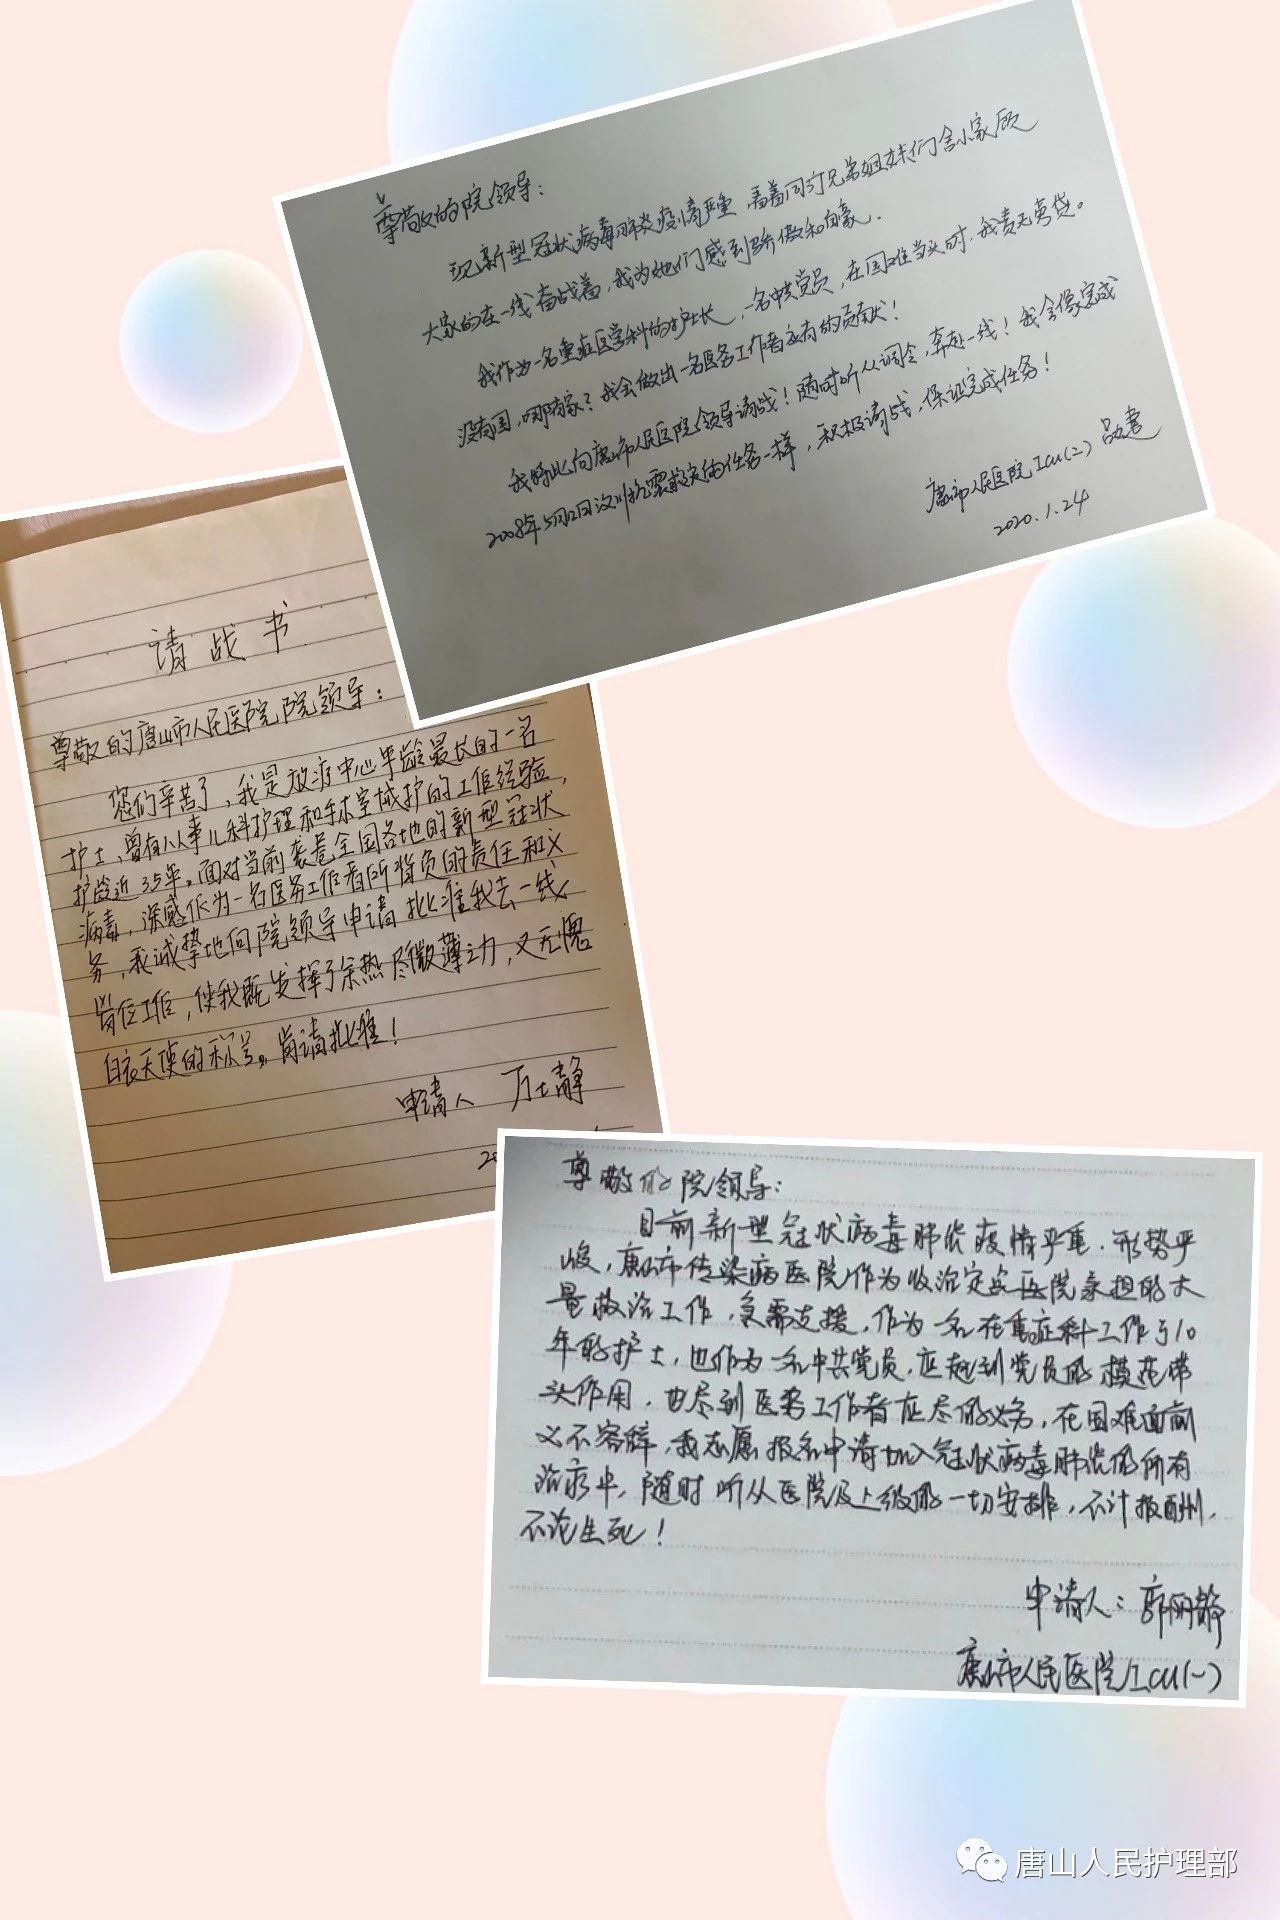 尊敬的院领导：
现新型冠状病毒肺炎疫情严重，看着同行兄弟姐妹们舍小家顾
大家的在一线奋战着，我为她们感到骄傲和自豪.
我作为一名重症医学科的护士长，一名中共党员，在国难当头时，我责无旁贷。
没有国，哪有家？我会做出一名医务工作者应有的贡献！
我特此向唐山市人民医院领导请战！随时听从调令，奔赴一线！我会像完成
2008年5月12日汶川抗震救灾的任务一样，积极请战，保证完成任务！
唐山市人民医院ICU(二)
2020.1.24
请战书
尊敬的唐山市人民医院院领导：
您们辛苦了，我是放疗中心年龄最长的一名
护士，曾有从事儿科护理和手术室域护的工作经验，
护龄近35年。面对当前袭卷全国各地的新型冠状
病毒，深感作为一名医务工作者所背负的责任和义
务，我诚挚地向院领导申请批准我去一线
岗位工作，使我既发挥了余热尽微薄之力，又无愧
白衣天使的称号。肯请批准！
申请人 万士静
尊敬的院领导：
目前新型冠状病毒肺炎疫情严重，形势严
峻，唐山市传染病医院作为收治定点医院承担的大
量救治工作，急需支援，作为一名在重症科工作了10
年的护士，也作为一名中共党员，应起到党员的模范带
头作用，也尽到医务工作者应尽的义务，在国难面前
义不容辞，我志愿报名申请加入冠状病毒肺炎的所有
治疗中，随时听从医院及上级的一切安排，不计报酬，
不论生死！
申请人：郭丽静
唐山市人民医院ICU(一)
唐山人民护理部